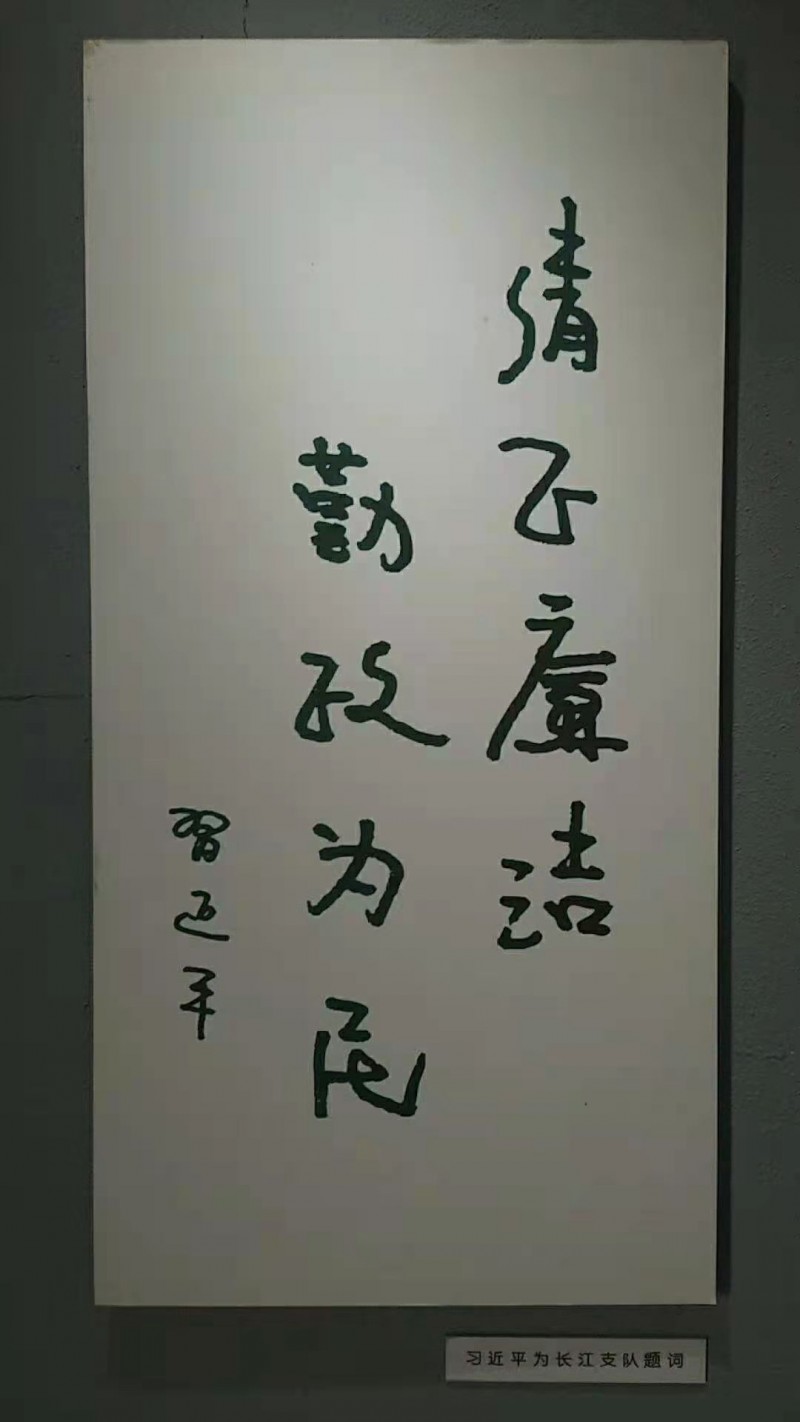 清正廉洁
勤政为民
習近平
习近平为长江支队题词